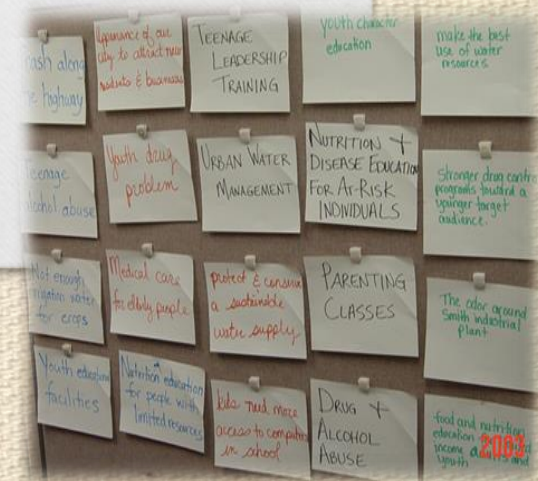 ash along
highway
Appearance of our
city to attract new
& business
TEENAGE
LEADERSHIP
TRAINING
youth character
education
make the best
use of water
resources
Teenage
alcohol abuse
Youth drug
problem
URBAN WATER
MANAGEMENT
NUTRITION +
DISEASE EDUCATION
FOR AT-RISK
INDIVIDUALS
Stronger drug
programs toward a
younger target
audience.
Not enough
irrigation water
for crops
Medical care
for elderly people
protect & conserve
a sustainable
water supply
PARENTING
CLASSES
The odor around
Smith industrial
plant
Youth education
facilities
Nutrition education
for people with
limited resources
kids need more
access to computers
in school
DRUG +
ALCOHOL
ABUSE
food and nutrition
education
income and
youth
2003